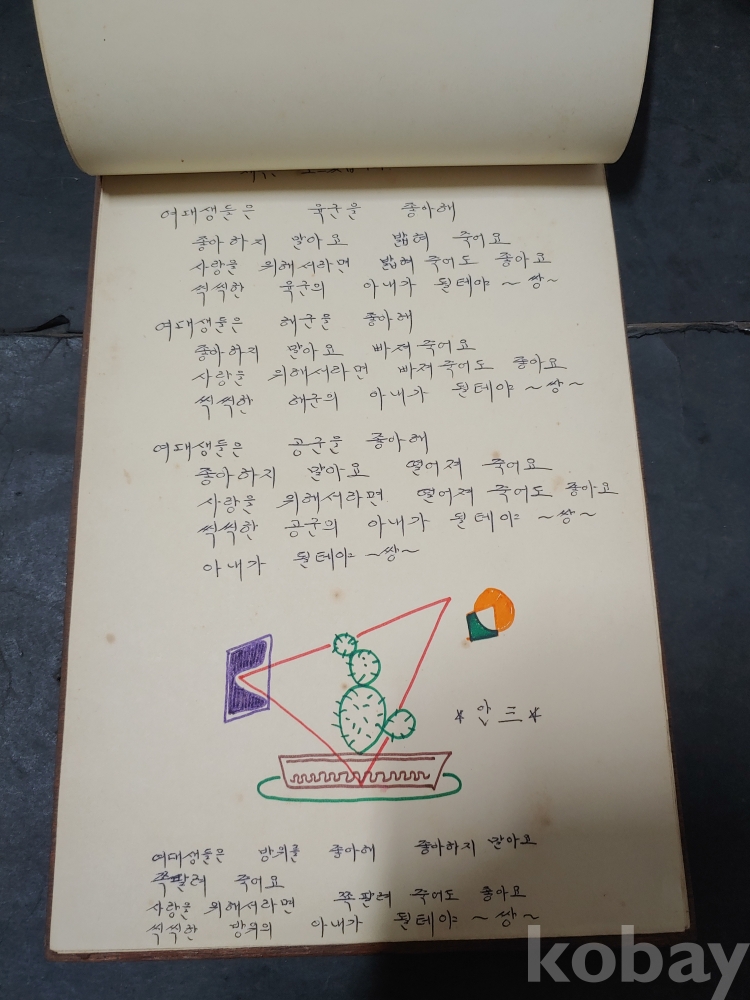 여대생들은 육군을 좋아해
좋아하지 말아요 밟혀 죽어요
사랑을 위해서라면 밟혀 죽어도 좋아요
씩씩한 육군의 아내가 될테야 ~ 쌍~
여대생들은 해군을 좋아해
좋아하지 말아요 빠져 죽어요
사랑을 위해서라면 빠져 죽어도 좋아요
씩씩한 해군의 아내가 될테야 ~ 쌍 ~
여대생들은 공군을 좋아해
좋아하지 말아요 떨어져 죽어요
사랑을 위해서라면 떨어져 죽어도 좋아요
씩씩한 공군의 아내가 될테야 ~ 쌍 ~
아내가 될테야 ~쌍~
* 안 三 *
여대생들은 방위를 좋아해 좋아하지 말아요
쪽팔려 죽어요
사랑을 위해서라면 쪽팔려 죽어도 좋아요
씩씩한 방위의 아내가 될테야 ~ 쌍 ~
kobay